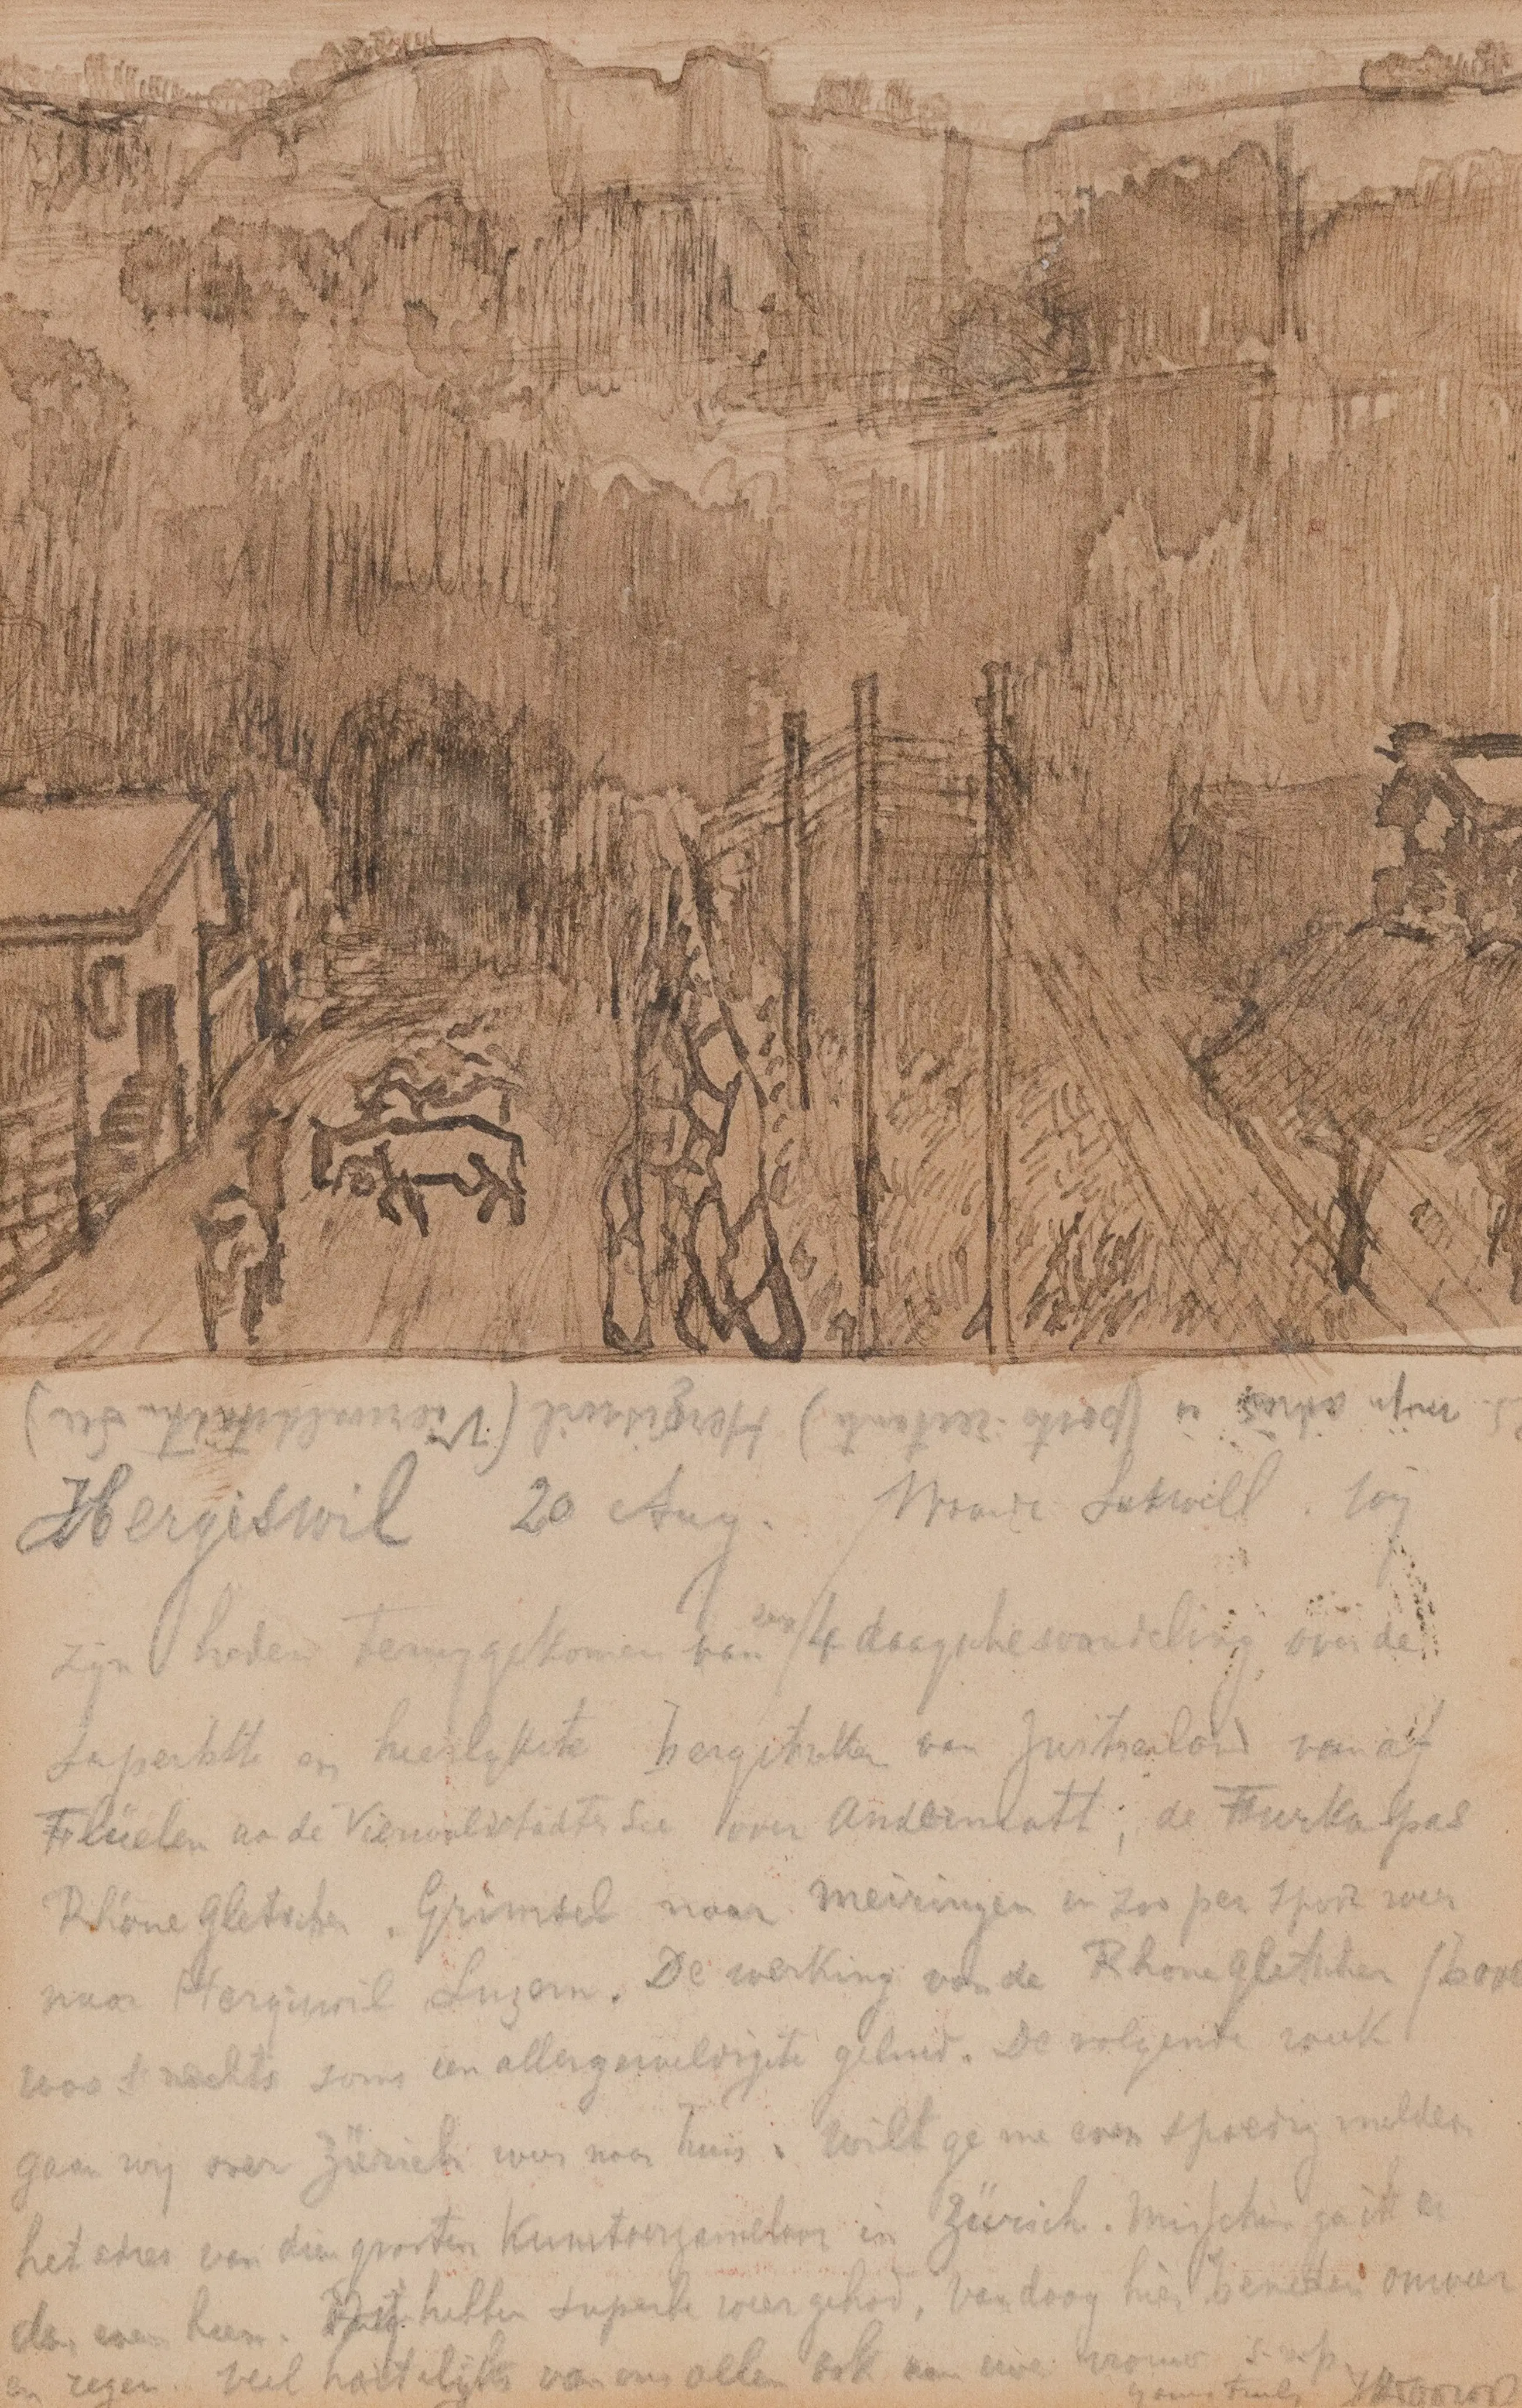 mijn adres is (poste-restante) Hergiswil (Vierwaldstätter See)
Hergiswil 20 Aug. Waarde Lutwill. Wij
zijn heden teruggekomen van een 4 daagsche wandeling over de
superbste en heerlykste bergstukken van Zwitserland vanaf
Flüelen a/d Vierwaldstädter See over Andermatt, de Furka pas
Rhône gletscher, Grimsel naar Meiringen en zoo per spoor weer
naar Hergiswil Luzern. De werking van de Rhone gletscher
was 's nachts soms een allergeweldigste geluid. De volgende week
gaan wij over Zürich weer naar huis. Wilt ge me even spoedig melden
het adres van dien grooten Kunstverzamelaar in Zürich. Misschien ga ik er
dan even heen. Wij hebben superbe weer gehad, vandaag hier beneden onweer
en regen. Veel hartelijks van ons allen ook aan uwe vrouw
yours truly